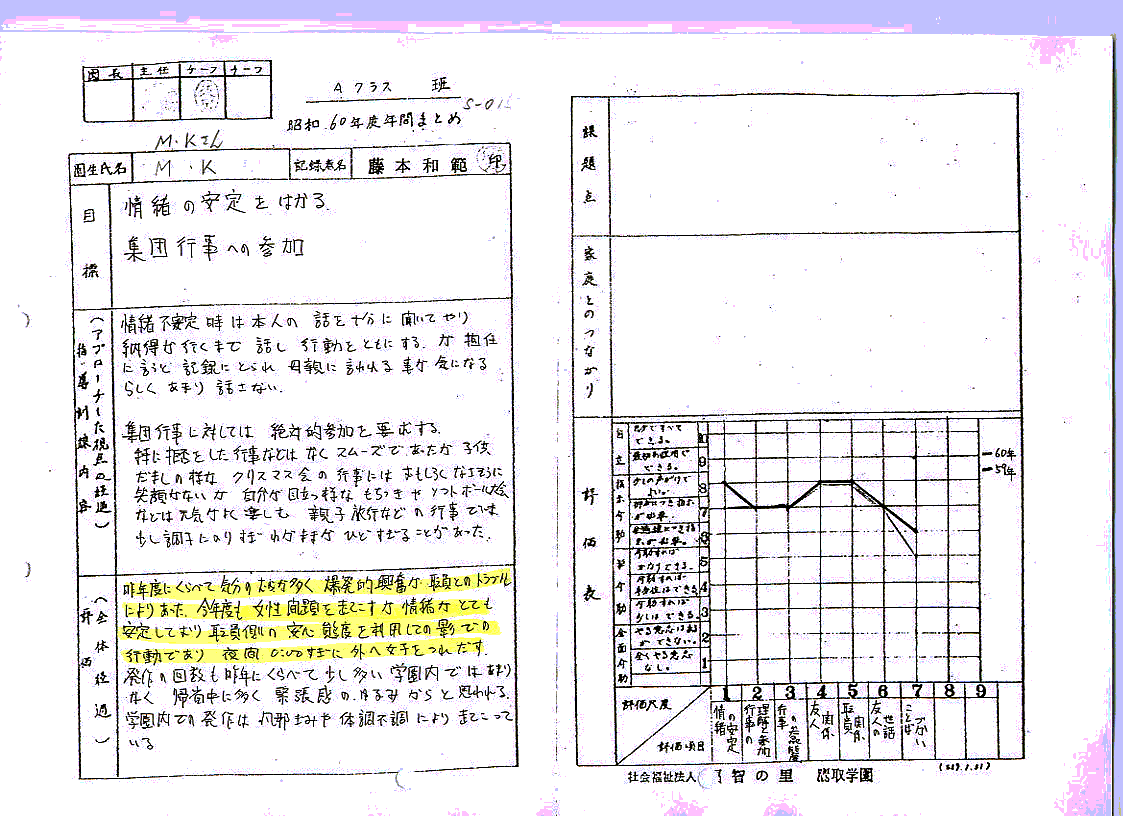 園長 主任 チーフ チーフ
Aクラス 班
S-015
昭和 60年度年間まとめ
M・Kさん
園生氏名 M・K 記録者名 藤本和範 印
目標
情緒の安定をはかる
集団行事への参加
指導訓練内容
(アプローチした視点の経過)
情緒不安定時は本人の話を十分に聞いてやり
納得が行くまで 話し 行動をともにする。が 担任
に言うと 記録にとられ 母親に言われる事が気になる
らしく あまり 話さない。
集団行事に対しては 絶対的参加を要求する。
特に拒否とした行事などはなくスムーズであったが 子供
だましの様な クリスマス会の行事には おもしろくなさそうに
笑顔がないが 自分が目立つ様な もちつきや ソフトボール大会
などは 元気がよく楽しむ 親子旅行などの行事では
少し調子にのりすぎ わがままがひどすぎることがあった。
評価
(全体経過)
昨年度にくらべて 気分の むらが多く 爆発的興奮が 職員とのトラブル
によりあった。今年度も 女性問題を起こすが 情緒がとても
安定しており 職員側の 安心 態度を利用しての 影での
行動であり 夜間 に外へ女子をつれだす。
発作の回数も昨年にくらべて 少し多い 学園内では あまり
なく 帰省中に多く 緊張感の ゆるみからと 思われる。
学園内での発作は 体調不調により 起こって
いる
課題点
家庭とのつながり
評価表
自立
指示介助
半介助
全面介助
できる。
10
9
8
7
6
5
4
3
2
1
60年
59年
評価尺度
評価項目
1 2 3 4 5 6 7 8 9
情緒の安定
行事の理解と参加
友人関係
職員関係
友人の世話
ことばづかい
社会福祉法人 智の里 鳥取学園